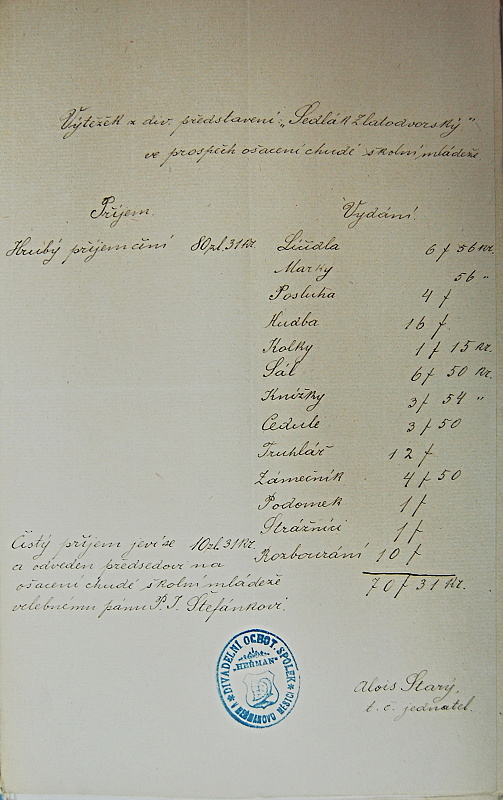 Výtěžek z div. představení „Sedlák Zlatodvorský"
ve prospěch ošacení chudé školní mládeže
Příjem.
Hrubý příjem činí 80 zl. 31 Kr.
Vydání.
Líčidla 6 f 56 Kr.
Marky 56 „
Posluha 4 f
Hudba 16 f.
Kolky 1 f 15 Kr.
Sál 6 f 50 Kr.
Knížky 3 f 54 „
Cedule 3 f 50
Truhlář 12 f
Zámečník 4 f 50
Podomek 1 f
Strážníci 1 f
Rozbourání 10 f
70 f 31 Kr.
Čistý příjem jeví se 10 zl. 31 Kr.
a odveden předsedovi na
ošacení chudé školní mládeže
velebnému pánu P. J. Štefánkovi.
DIVADELNÍ OCHOT. SPOLEK
„HEŘMAN"
V HEŘMANOVU MĚSTCI
Alois Starý,
t. č. jednatel.